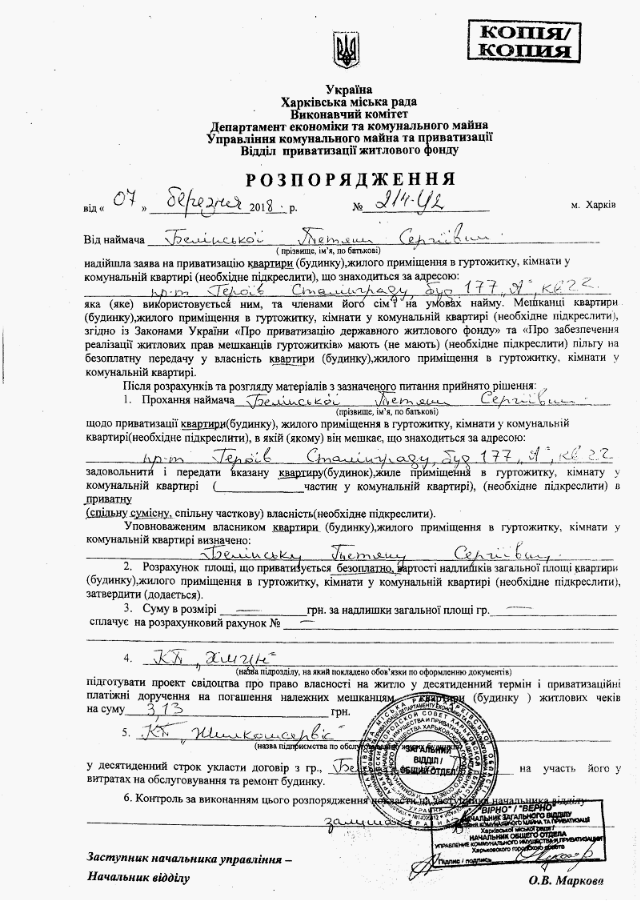 КОПІЯ/
КОПИЯ
Україна
Харківська міська рада
Виконавчий комітет
Департамент економіки та комунального майна
Управління комунального майна та приватизації
Відділ приватизації житлового фонду
РОЗПОРЯДЖЕННЯ
від « 07 » березня 2018 р. № 214-У2 м. Харків
Від наймача Белінської Тетяни Сергіївни
( прізвище, ім’я, по батькові)
надійшла заява на приватизацію квартири (будинку),жилого приміщення в гуртожитку, кімнати у
комунальній квартирі (необхідне підкреслити), що знаходиться за адресою:
пр-т Героїв Сталінграду, буд 177 „А", кв 22
яка (яке) використовується ним, та членами його сім'ї на умовах найму. Мешканці квартири
(будинку),жилого приміщення в гуртожитку, кімнати у комунальній квартирі (необхідне підкреслити),
згідно із Законами України «Про приватизацію державного житлового фонду» та «Про забезпечення
реалізації житлових прав мешканців гуртожитків» мають (не мають) (необхідне підкреслити) пільгу на
безоплатну передачу у власність квартири (будинку),жилого приміщення в гуртожитку, кімнати у
комунальній квартирі.
Після розрахунків та розгляду матеріалів з зазначеного питання прийнято рішення:
1. Прохання наймача Белінської Тетяни Сергіївни
(прізвище, ім’я, по батькові)
щодо приватизації квартири(будинку), жилого приміщення в гуртожитку, кімнати у комунальній
квартирі(необхідне підкреслити), в якій (якому) він мешкає, що знаходиться за адресою:
пр-т Героїв Сталінграду, буд 177 „А", кв 22
задовольнити і передати вказану квартиру(будинок),жиле приміщення в гуртожитку, кімнату у
комунальній квартирі (____________частин у комунальній квартирі), (необхідне підкреслити) в
приватну
(спільну сумісну, спільну часткову) власність(необхідне підкреслити).
Уповноваженим власником квартири (будинку),жилого приміщення в гуртожитку, кімнати у
комунальній квартирі визначено:
Белінську Тетяну Сергіївну
2. Розрахунок площі, що приватизується безоплатно, вартості надлишків загальної площі квартири
(будинку),жилого приміщення в гуртожитку, кімнати у комунальній квартирі (необхідне підкреслити),
затвердити (додається).
3. Суму в розмірі — грн. за надлишки загальної площі гр. —
сплачує на розрахунковий рахунок № —
4. КП „ХМЦН"
(назва підрозділу, на який покладено обов’язки по оформленню документів)
підготувати проект свідоцтва про право власності на житло у десятиденний термін і приватизаційні
платіжні доручення на погашення належних мешканцям квартири (будинку ) житлових чеків
на суму 3,13 грн.
5. КП „Жилкомсервіс"
(назва підприємства по обслуговуванню жилих будинків)
у десятиденний строк укласти договір з гр., на участь його у
витратах на обслуговування та ремонт будинку.
6. Контроль за виконанням цього розпорядження покласти на заступника начальника відділу
ЗАГАЛЬНИЙ
ВІДДІЛ /
ОБЩИЙ ОТДЕЛ
"ВІРНО" / "ВЕРНО"
НАЧАЛЬНИК ЗАГАЛЬНОГО ВІДДІЛУ
УПРАВЛІННЯ КОМУНАЛЬНОГО МАЙНА ТА ПРИВАТИЗАЦІЇ
Харківської міської ради /
НАЧАЛЬНИК ОБЩЕГО ОТДЕЛА
УПРАВЛЕНИЕ КОММУНАЛЬНОГО ИМУЩЕСТВА И ПРИВАТИЗАЦИИ
Харьковского городского совета
Підпис / подпись
Заступник начальника управління –
Начальник відділу О.В. Маркова